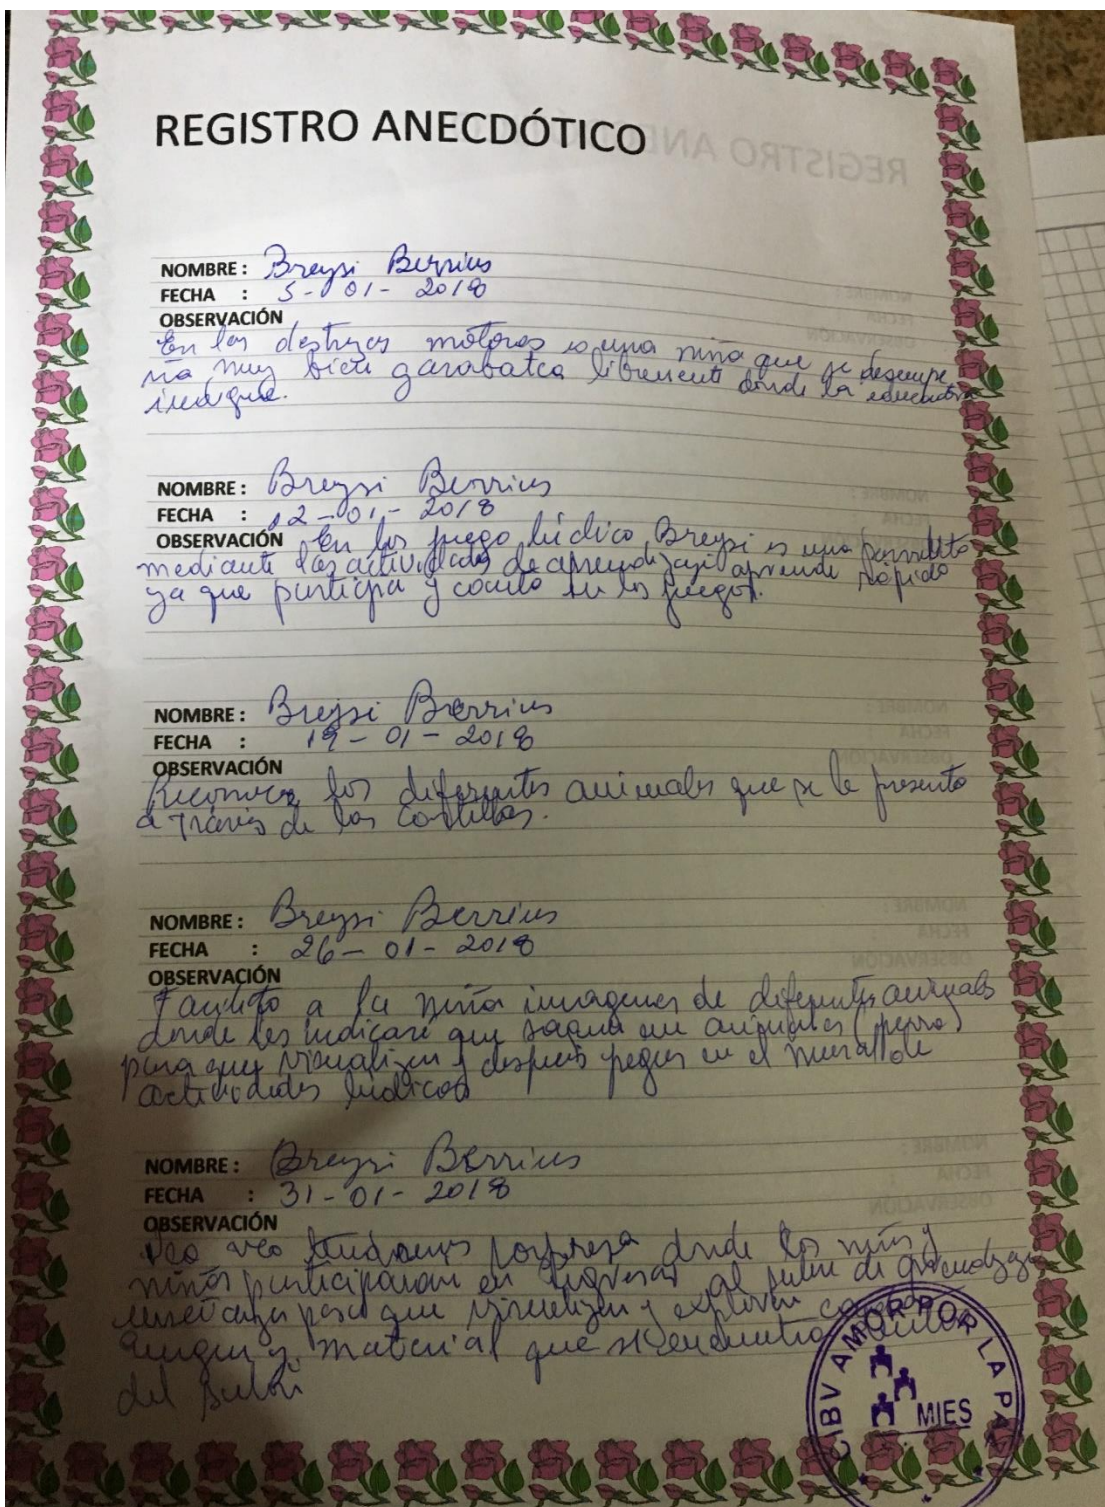 REGISTRO ANECDÓTICO
NOMBRE : Breysi Berrius
FECHA : 5-01-2018
OBSERVACIÓN
En las destrezas motoras es una niña que se desempe
ña muy bien garabatea libremente donde la educadora
indique.
NOMBRE : Breysi Berrius
FECHA : 12-01-2018
OBSERVACIÓN En los juego lúdico Breysi es una
mediante las actividades de aprendizaje aprende rápido
ya que participa y en los juegos.
NOMBRE : Breysi Berrius
FECHA : 19-01-2018
OBSERVACIÓN
Reconoce los diferentes animales que se le presento
a través de las
NOMBRE : Breysi Berrius
FECHA : 26-01-2018
OBSERVACIÓN
Facilito a la niña imagenes de diferentes animales
donde les indicaré que un animales (perro)
para que visualizen y después pegen en el mural de
actividades lúdicas
NOMBRE : Breysi Berrius
FECHA : 31-01-2018
OBSERVACIÓN
Veo veo donde los niños y
niñas participaran en ingresar al de aprendizaje
que visualizen y exploren
material que se encuentra
del
CIBV AMOR POR LA PAZ
MIES